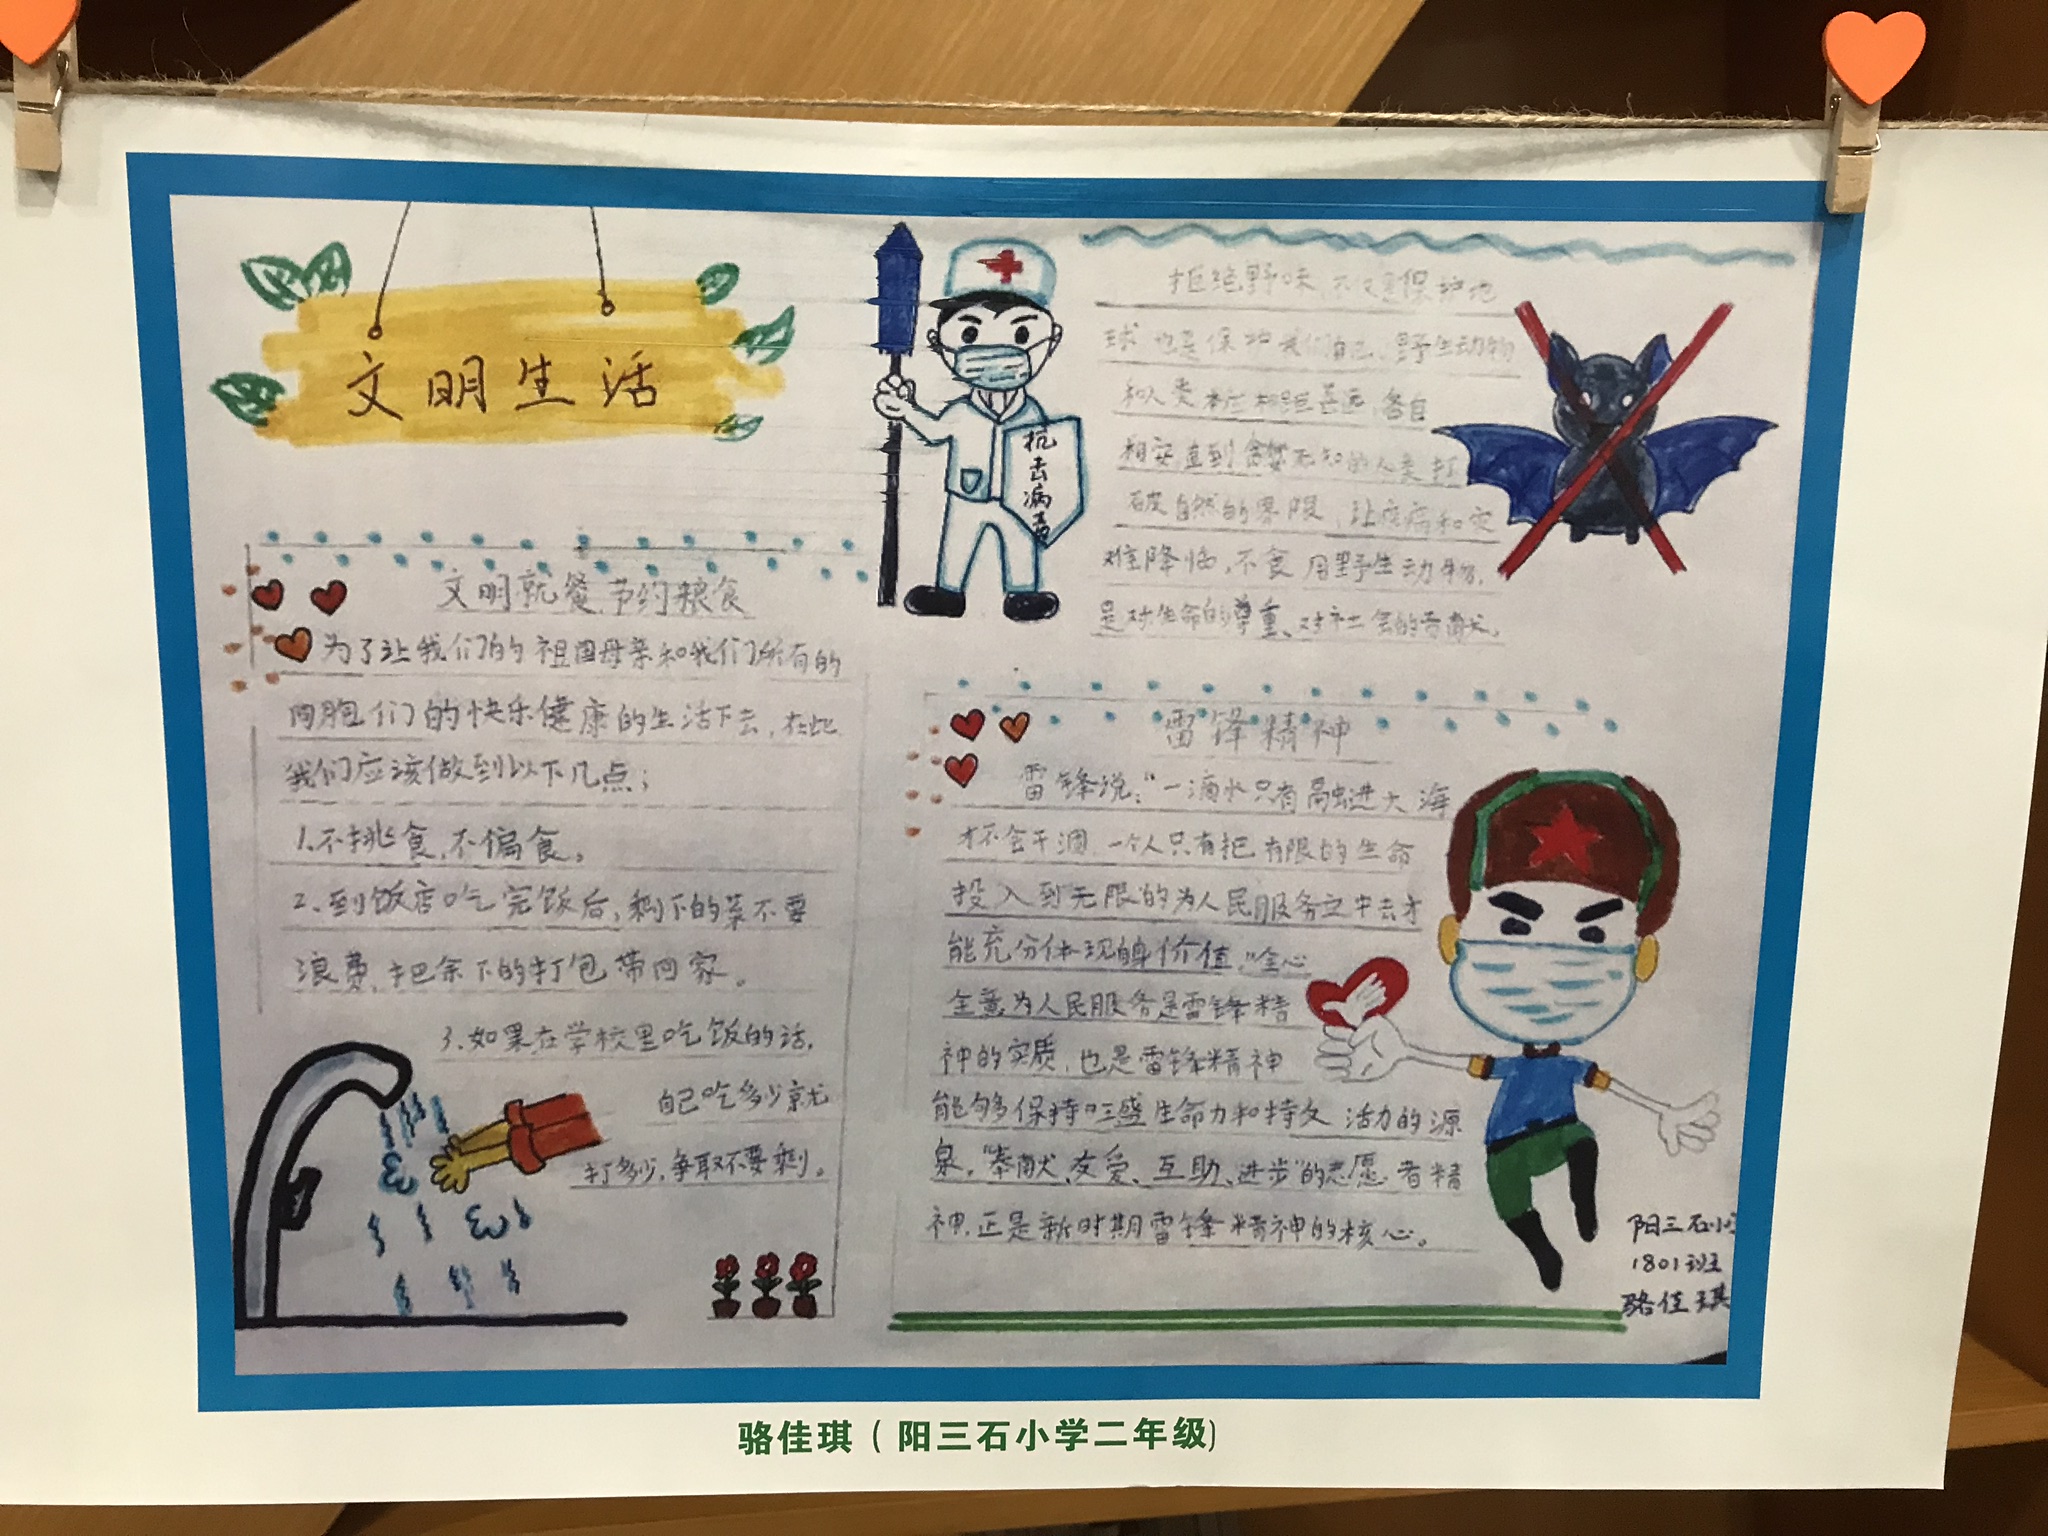 文明生活
抗击病毒
拒绝野味,不仅是保护地
球也是保护我们自己,野生动物
和人类本应相距甚远,各自
相安直到贪婪无知的人类打
破自然的界限,让疾病和灾
难降临,不食用野生动物,
是对生命的尊重、对社会的贡献。
文明就餐 节约粮食
为了让我们的祖国母亲和我们所有的
同胞们的快乐健康的生活下去,在此
我们应该做到以下几点:
1.不挑食,不偏食。
2、到饭店吃完饭后,剩下的菜不要
浪费,把余下的打包带回家。
3.如果在学校里吃饭的话,
自己吃多少就
打多少,争取不要剩。
雷锋精神
雷锋说:"一滴水只有融进大海
才不会干涸,一个人只有把有限的生命
投入到无限的为人民服务之中去才
能充分体现自身价值,"全心
全意为人民服务是雷锋精
神的实质,也是雷锋精神
能够保持旺盛生命力和持久活力的源
泉,"奉献、友爱、互助、进步"的志愿者精
神,正是新时期雷锋精神的核心。
阳三石小学
1801班
骆佳琪
骆佳琪(阳三石小学二年级)